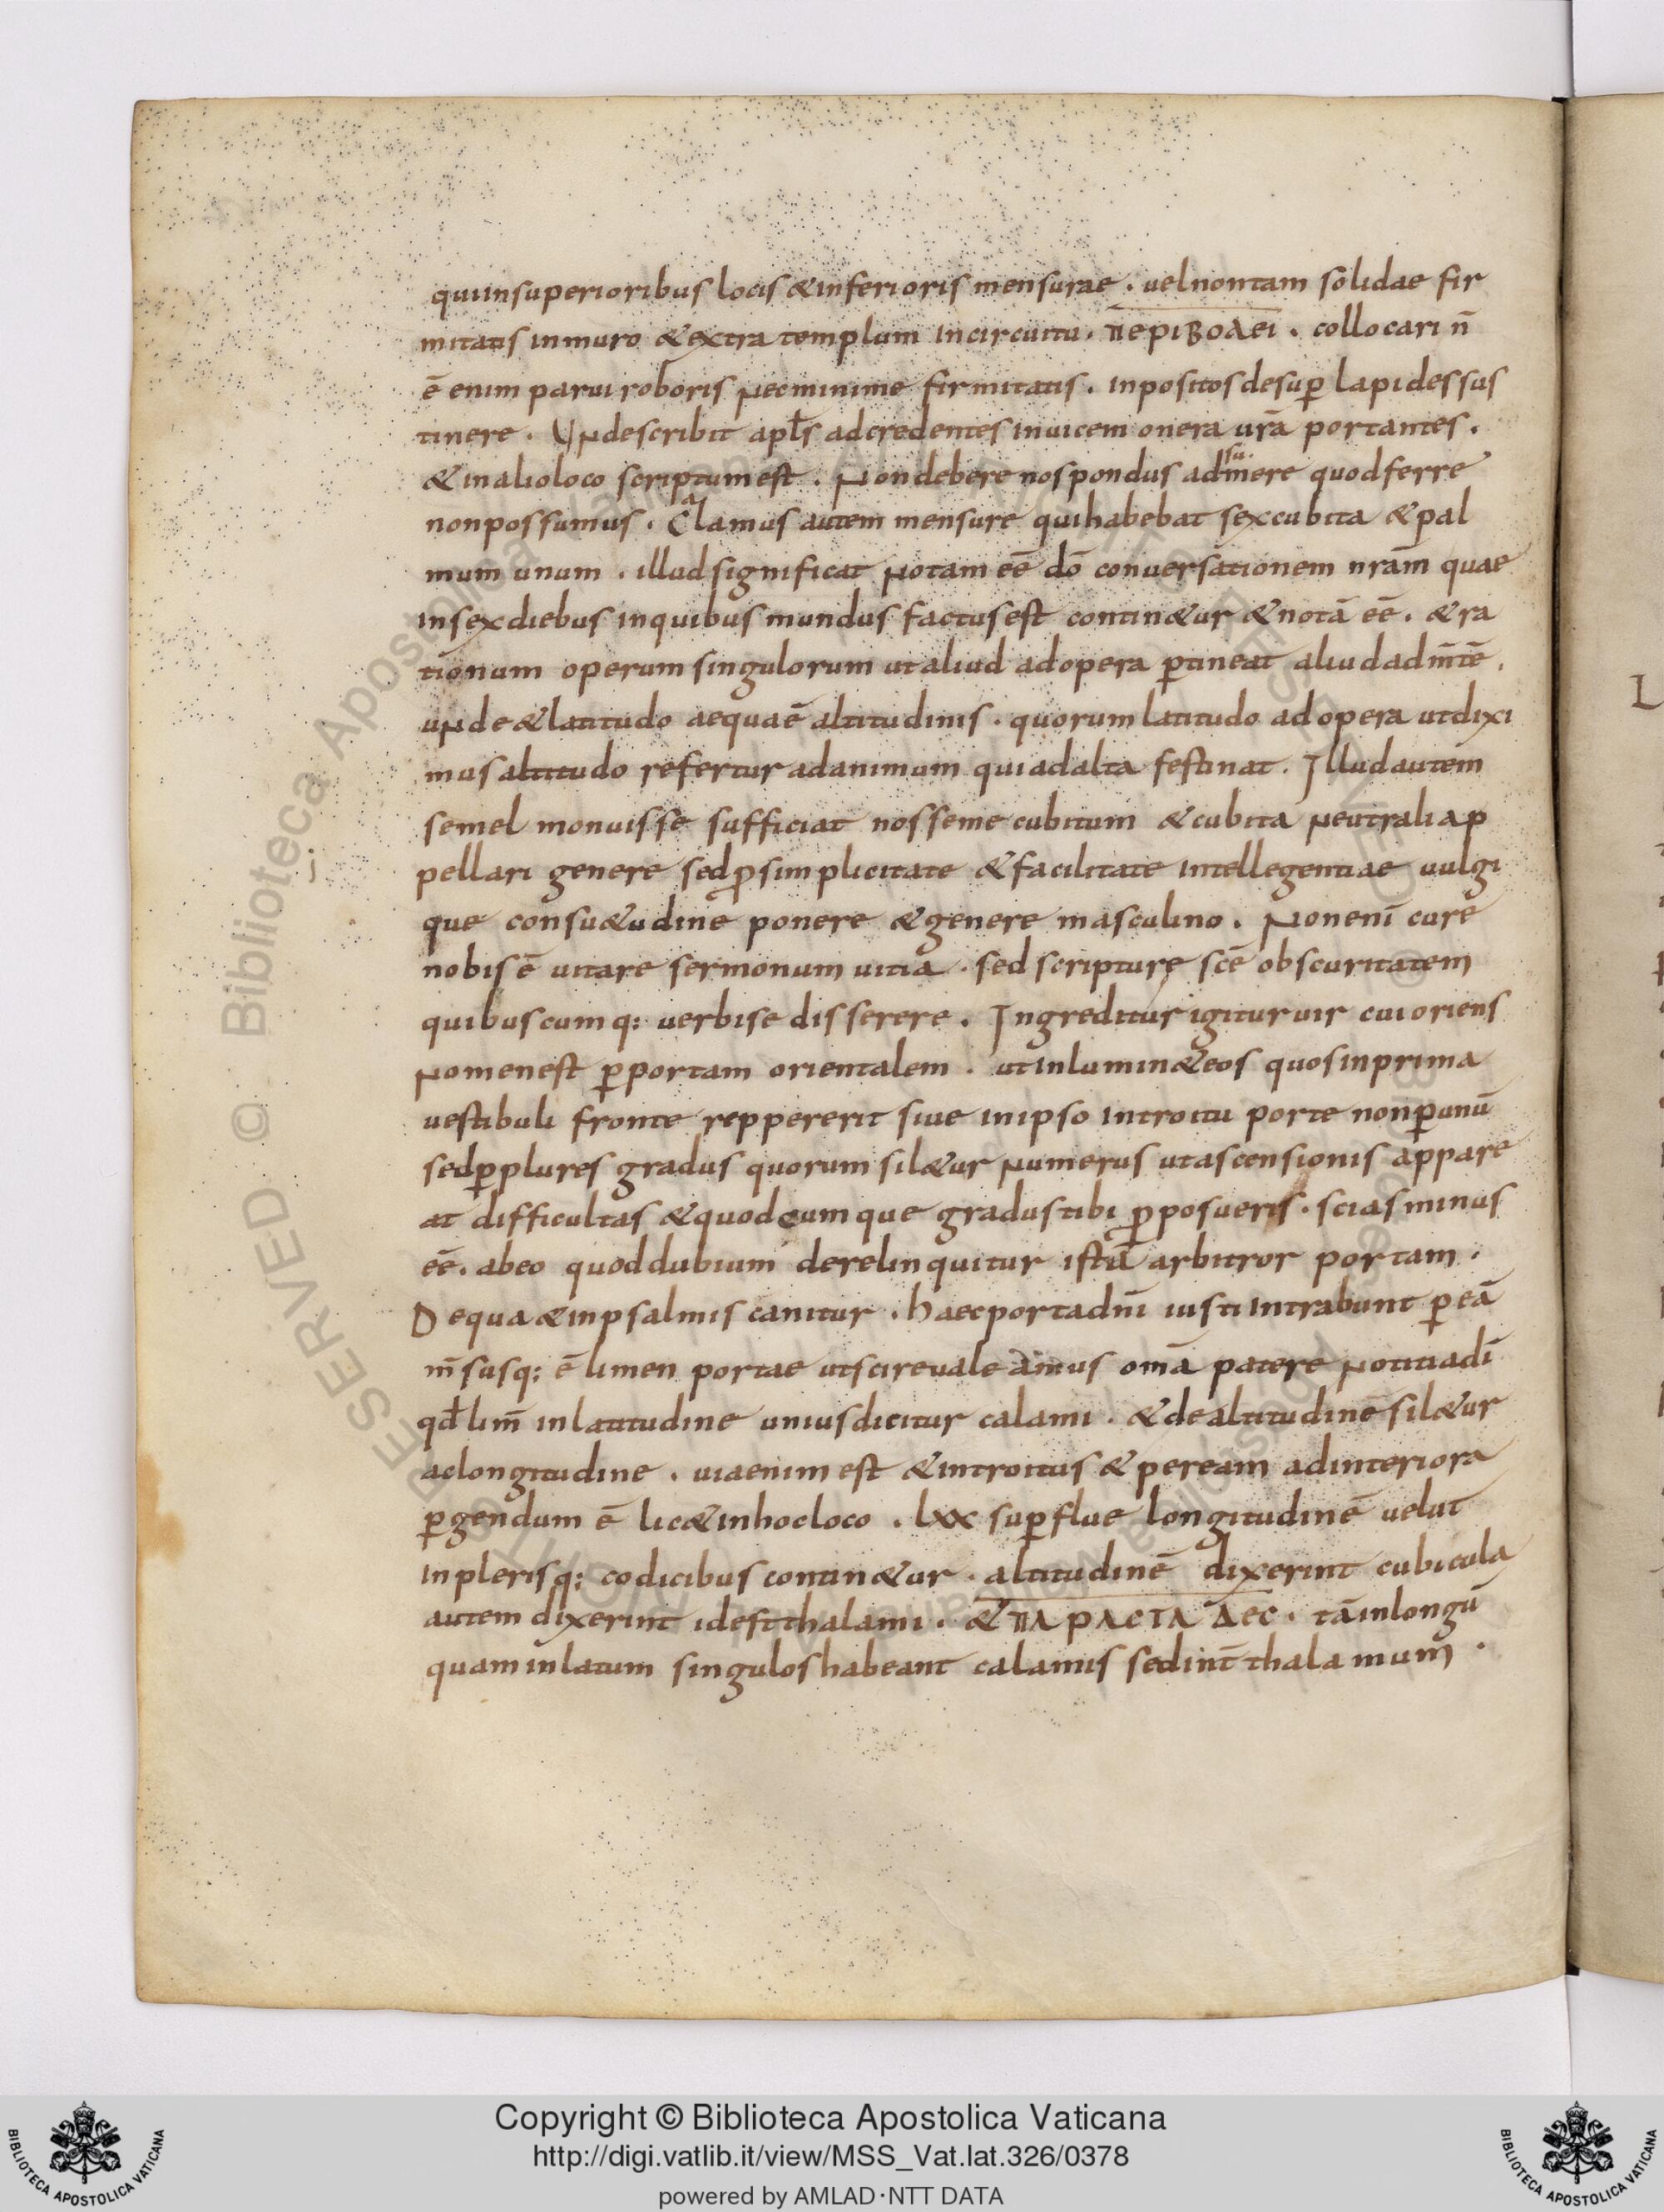 qui in superioribus locis & inferioris mensurae . uel non tam solidae fir
mitatis in muro & extra templum in circuitu . ΠΕΡΙΒΟΛΕΙ . collocari n̄
ē enim parui roboris nec minime firmitatis . inpositos desup̄ lapides sus
tinere . Unde scribit apłs ad credentes inuicem onera ur̄a portantes .
& in alio loco scriptum est . Non debere nos pondus admere quod ferre
su.
non possumus . Clamus autem mensure qui habebat sex cubita & pal
a
mum unum . illud significat notam eē dō conuersationem nrām quae
in sex diebus in quibus mundus factus est contin&ur & notā eē . & ra
tionum operum singulorum ut aliud ad opera p̄tineat aliud ad m̄tē .
unde & latitudo aequa ē altitudinis . quorum latitudo ad opera ut dixi
mus altitudo refertur ad animum qui ad alta festinat . Illud autem
semel monuisse sufficiat nosse me cubitum & cubita neutrali ap
pellari genere sed p simplicitate & facilitate intellegentiae uulgi
que consu&udinē ponere & genere masculino . Non enī curē
nobis ē uitare sermonum uitia . sed scripture scē obscuritatem
quibuscumq: uerbis edisserere . Ingreditur igitur uir cui oriens
nomen est p̄ portam orientalem . ut inlumin& eos quos in prima
uestibuli fronte reppererit siue in ipso introitu porte non p̄ unū
sed p̄ plures gradus quorum sil&ur numerus ut ascensionis appare
at difficultas & quodcumque gradus tibi p̄posueris . scias minus
eē . ab eo quod dubium derelinquitur istā arbitror portam .
De qua & in psalmis canitur . haec porta dn̄i iusti intrabunt p̄ eā
m̄susq: ē limen portae ut scire ualeamus om̄a patere notitia dī
qđ lim̄ in latitudine unius dicitur calami . & de altitudinē sil&ur
ac longitudine . uia enim est & introitus & per eam ad interiora
p̄gendum ē lic& in hoc loco . lxx sup̄flue longitudinē uelut
in plerisq: codicibus contin&ur . altitudinē dixerint cubicula
autem dixerint id est thalami . & ΠΑΡΑCΤΑΔΕC . tā in longū
quam in latum singulos habeant calamis sed int̄ thalamum .
L
Copyright © Biblioteca Apostolica Vaticana
http://digi.vatlib.it/view/MSS_Vat.lat.326/0378
powered by AMLAD·NTT DATA
BIBLIOTECA APOSTOLICA VATICANA
BIBLIOTECA APOSTOLICA VATICANA